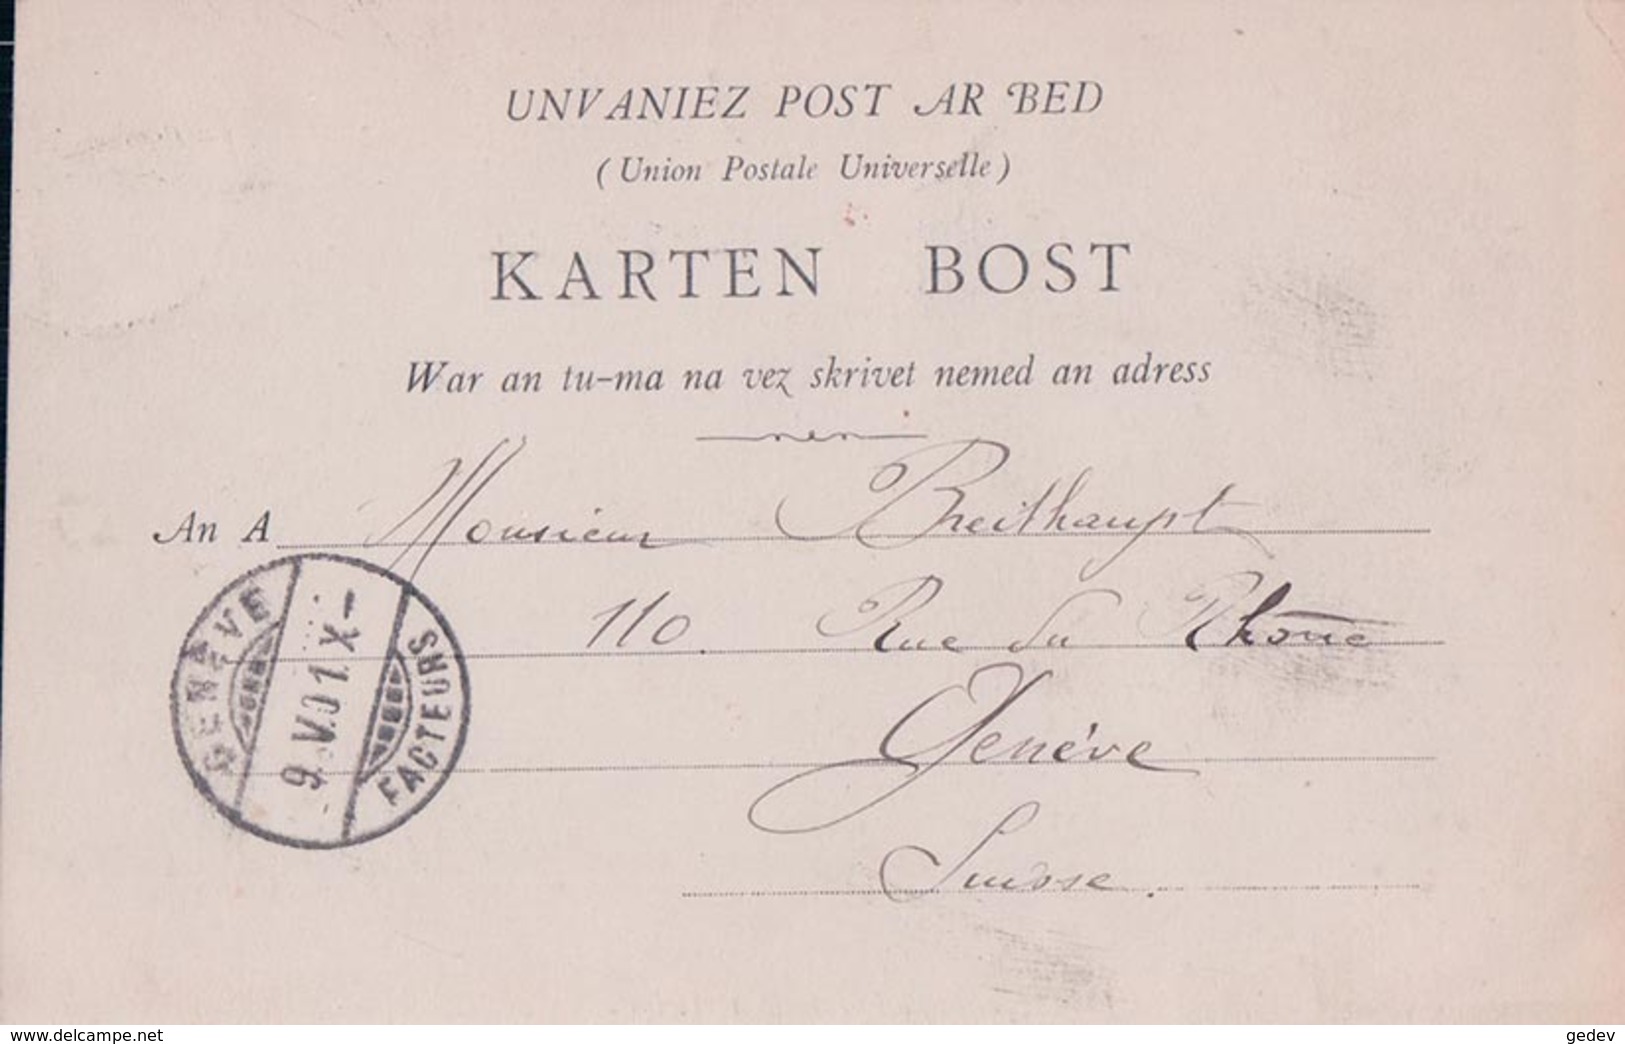 UNVANIEZ POST AR BED
(Union Postale Universelle)
KARTEN BOST
War an tu-ma na vez skrivet nemed an adress
An A Monsieur Breithaupt
110. Rue du Rhône
Genève
Suisse.
GENÈVE
9.V.01.X-
FACTEURS
www.delcampe.net
gedev